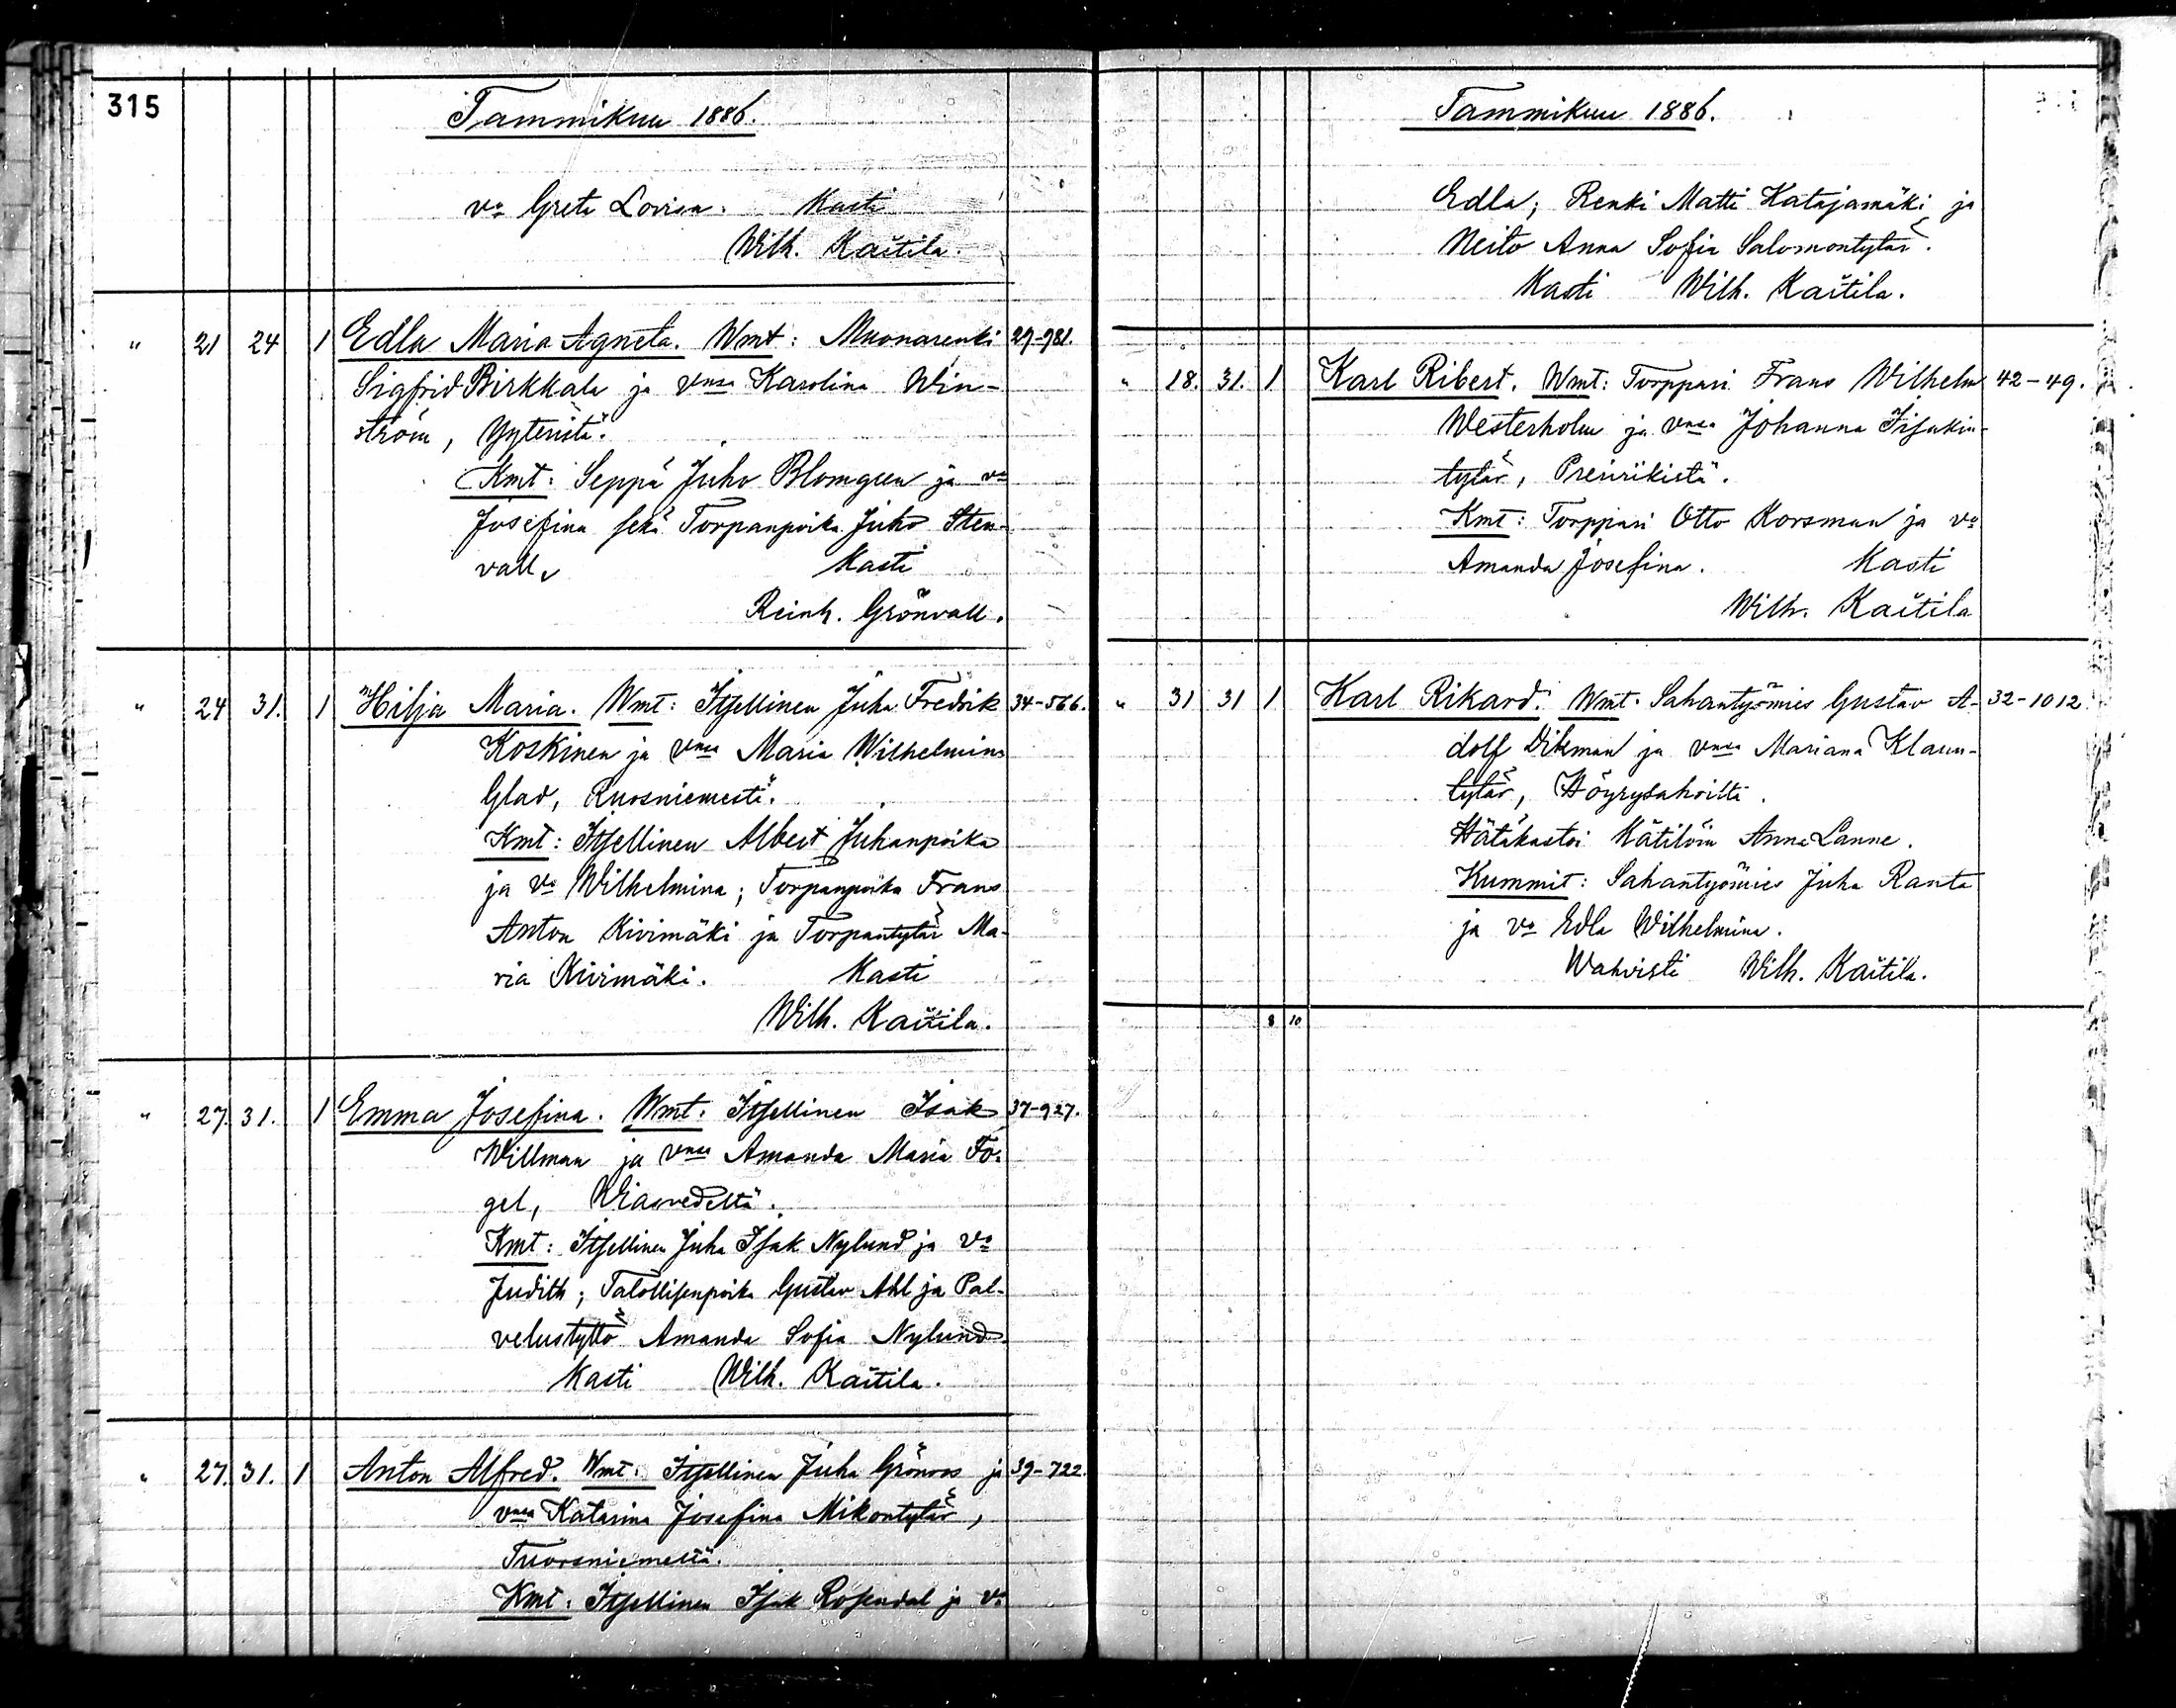 315
Tammikuu 1886.
vo Greta Lovisa. Kasti
Wilh. Kaitila.
" 21 24 1 Edla Maria Agneta. Wmt: Muonarenki 29-981.
Sigfrid Birkkala ja vnsa Karolina Win-
ström, Yyteristä.
Kmt: Seppä Juho Blomgren ja vo
Josefina sekä Torpanpoika Juho Sten-
vall. Kasti
Reinh. Grönvall.
" 24 31. 1 Hilja Maria. Wmt: Itsellinen Juha Fredrik 34-566.
Koskinen ja vnsa Maria Wilhelmina
Glad, Ruosniemestä.
Kmt: Itsellinen Albert Juhanpoika
ja vo Wilhelmina; Torpanpoika Frans
Anton Kivimäki ja Torpantytär Ma-
ria Kivimäki. Kasti
Wilh. Kaitila.
" 27. 31. 1 Emma Josefina. Wmt. Itsellinen Isak 37-927.
Willman ja vnsa Amanda Maria Fo-
gel, Wiasvedeltä.
Kmt: Itsellinen Juha Isak Nylund ja vo
Judith; Talollisenpoika Gustav Ahl ja Pal-
velustyttö Amanda Sofia Nylund.
Kasti Wilh. Kaitila.
" 27. 31. 1 Anton Alfred. Wmt: Itsellinen Juha Grönroos ja 39-722.
vnsa Katarina Josefina Mikontytär,
Tuorsniemeltä.
Kmt: Itsellinen Isak Rosendal ja vo
Tammikuu 1886.
Edla; Renki Matti Katajamäki ja
Neito Anna Sofia Salomontytär.
Kasti Wilh. Kaitila.
" 18. 31. 1 Karl Ribert. Wmt: Torppari Frans Wilhelm 42-49.
Westerholm ja vnsa Johanna Iisakin-
tytär, Preiviikistä.
Kmt: Torppari Otto Korsman ja vo
Amanda Josefina. Kasti
Wilh. Kaitila
" 31 31 1 Karl Rikard. Wmt. Sahantyömies Gustav A- 32-1012
dolf Dikman ja vnsa Mariana Klaun-
tytär, Höyrysahoilta.
Hätäkastoi Kätilöin Anna Lanne.
Kummit: Sahantyömies Juha Ranta
ja vo Edla Wilhelmina.
Wahvisti Wilh. Kaitila.
8 10